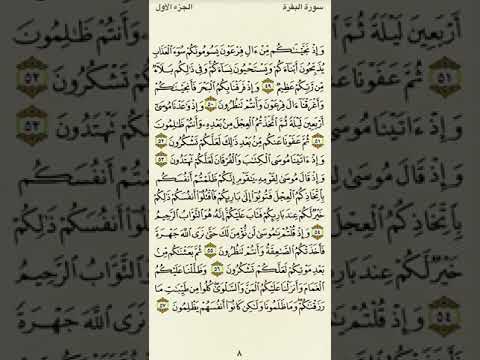 سورة البقرة الجزء الأول
وَإِذْ نَجَّيْنَٰكُم مِّنْ ءَالِ فِرْعَوْنَ يَسُومُونَكُمْ سُوٓءَ ٱلْعَذَابِ
يُذَبِّحُونَ أَبْنَآءَكُمْ وَيَسْتَحْيُونَ نِسَآءَكُمْ وَفِى ذَٰلِكُم بَلَآءٌ
مِّن رَّبِّكُمْ عَظِيمٌ ٤٩ وَإِذْ فَرَقْنَا بِكُمُ ٱلْبَحْرَ فَأَنجَيْنَٰكُمْ
وَأَغْرَقْنَآ ءَالَ فِرْعَوْنَ وَأَنتُمْ تَنظُرُونَ ٥٠ وَإِذْ وَٰعَدْنَا مُوسَىٰٓ
أَرْبَعِينَ لَيْلَةً ثُمَّ ٱتَّخَذْتُمُ ٱلْعِجْلَ مِنۢ بَعْدِهِۦ وَأَنتُمْ ظَٰلِمُونَ
٥١ ثُمَّ عَفَوْنَا عَنكُم مِّنۢ بَعْدِ ذَٰلِكَ لَعَلَّكُمْ تَشْكُرُونَ ٥٢
وَإِذْ ءَاتَيْنَا مُوسَى ٱلْكِتَٰبَ وَٱلْفُرْقَانَ لَعَلَّكُمْ تَهْتَدُونَ ٥٣
وَإِذْ قَالَ مُوسَىٰ لِقَوْمِهِۦ يَٰقَوْمِ إِنَّكُمْ ظَلَمْتُمْ أَنفُسَكُم
بِٱتِّخَاذِكُمُ ٱلْعِجْلَ فَتُوبُوٓا۟ إِلَىٰ بَارِئِكُمْ فَٱقْتُلُوٓا۟ أَنفُسَكُمْ ذَٰلِكُمْ
خَيْرٌ لَّكُمْ عِندَ بَارِئِكُمْ فَتَابَ عَلَيْكُمْ إِنَّهُۥ هُوَ ٱلتَّوَّابُ ٱلرَّحِيمُ
٥٤ وَإِذْ قُلْتُمْ يَٰمُوسَىٰ لَن نُّؤْمِنَ لَكَ حَتَّىٰ نَرَى ٱللَّهَ جَهْرَةً
فَأَخَذَتْكُمُ ٱلصَّٰعِقَةُ وَأَنتُمْ تَنظُرُونَ ٥٥ ثُمَّ بَعَثْنَٰكُم مِّنۢ
بَعْدِ مَوْتِكُمْ لَعَلَّكُمْ تَشْكُرُونَ ٥٦ وَظَلَّلْنَا عَلَيْكُمُ
ٱلْغَمَامَ وَأَنزَلْنَا عَلَيْكُمُ ٱلْمَنَّ وَٱلسَّلْوَىٰ كُلُوا۟ مِن طَيِّبَٰتِ مَا
رَزَقْنَٰكُمْ وَمَا ظَلَمُونَا وَلَٰكِن كَانُوٓا۟ أَنفُسَهُمْ يَظْلِمُونَ ٥٧
٨